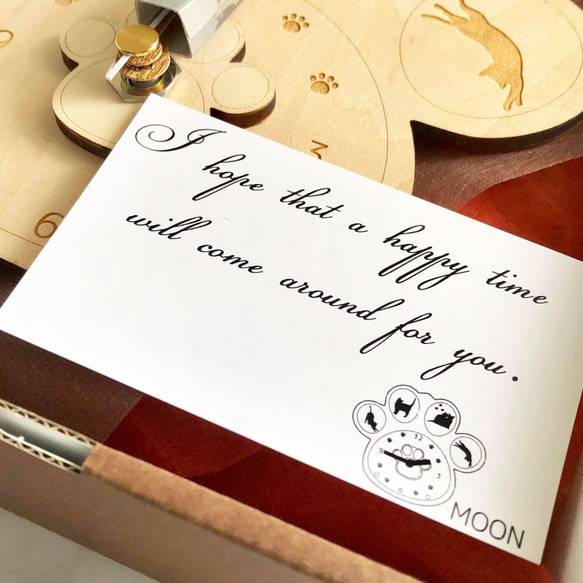 9
3
6
I hope that a happy time
will come around for you.
12
9 3
6
MOON